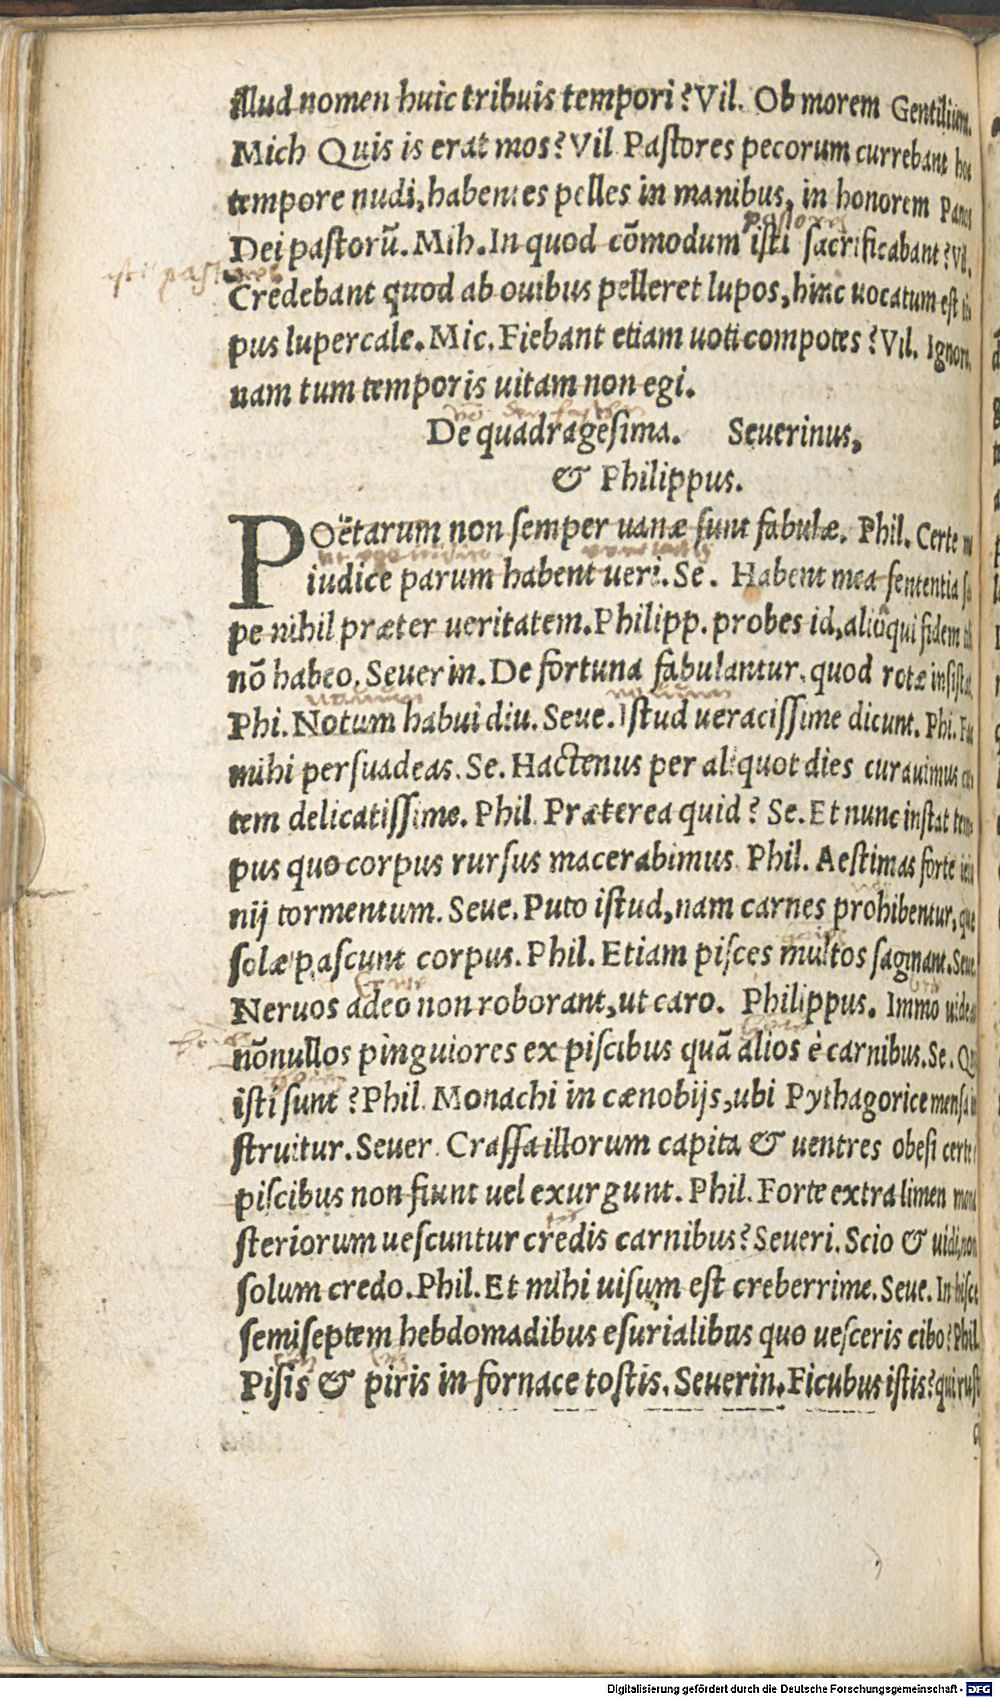 illud nomen huic tribuis tempori? Vil. Ob morem Gentilium.
Mich Quis is erat mos? Vil Paſtores pecorum currebant hoc
tempore nudi, habentes pelles in manibus, in honorem Panos
paſtores
Dei paſtorū. Mih. In quod cōmodum iſti ſacrificabant? Vil.
iſti paſtores
Credebant quod ab ouibus pelleret lupos, hinc uocatum eſt
pus lupercale. Mic. Fiebant etiam uoti compotes? Vil. Ignoro,
nam tum temporis uitam non egi.
De quadrageſima. Seuerinus,
& Philippus.
POëtarum non ſemper uanæ ſunt fabulæ. Phil. Certe
iudice parum habent ueri. Se. Habent mea ſententia
pe nihil præter ueritatem. Philipp. probes id, alioqui fidem
nō habeo. Seuerin. De fortuna fabulantur, quod rotæ inſiſtat,
Phi. Notum habui diu. Seue. Iſtud ueraciſſime dicunt. Phi.
mihi perſuadeas. Se. Hactenus per aliquot dies curauimus
tem delicatiſſime. Phil. Præterea quid? Se. Et nunc inſtat tem
pus quo corpus rurſus macerabimus. Phil. Aeſtimas forte ieiu
nij tormentum. Seue. Puto iſtud, nam carnes prohibentur, quæ
ſolæ paſcunt corpus. Phil. Etiam piſces multos ſaginant. Seue.
Neruos adeo non roborant, ut caro. Philippus. Immo uideas
nōnullos pinguiores ex piſcibus quā alios è carnibus. Se. Qui
iſti ſunt? Phil. Monachi in cænobijs, ubi Pythagorice menſa
ſtruitur. Seuer. Craſſa illorum capita & uentres obeſi certe
piſcibus non fiunt uel exurgunt. Phil. Forte extra limen mona
ſteriorum ueſcuntur credis carnibus? Seueri. Scio & uidi, non
ſolum credo. Phil. Et mihi uiſum eſt creberrime. Seue. In hiſce
ſemiſeptem hebdomadibus eſurialibus quo ueſceris cibo? Phil.
Piſis & piris in fornace toſtis. Seuerin. Ficubus iſtis?
Digitalisierung gefördert durch die Deutsche Forschungsgemeinschaft - DFG